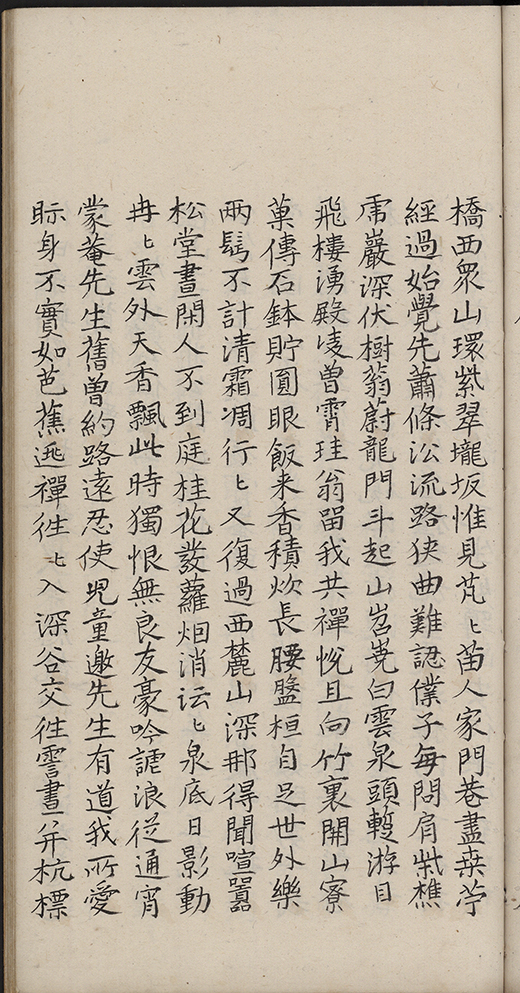 橋西衆山環紫翠壠坂惟見芃〻苗人家門巷盡桑苧
經過始覺先蕭條㳂流路狹曲難認僕子每問肩柴樵
虎巖深伏樹蓊蔚龍門斗起山岧嶤白雲泉頭蹔游目
飛樓湧殿凌曾霄珪翁畱我共禪悅且向竹裏開山寮
菓傳石鉢貯圓眼飯来香積炊長腰盤桓自足世外樂
兩鬂不計清霜凋行〻又復過西麓山深那得聞喧囂
松堂晝閑人不到庭桂花發蘿烟消沄〻泉底日影動
冉〻雲外天香飄此時獨恨無良友豪吟謔浪從通宵
蒙菴先生舊曾約路遠忍使児童邀先生有道我所愛
眎身不實如芭蕉逃禪往〻入深谷交往霅晝并杭標